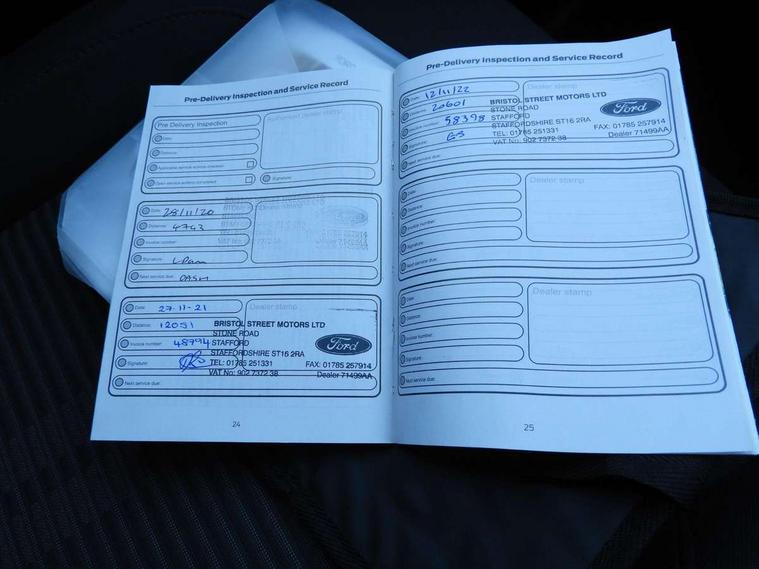 Pre-Delivery Inspection and Service Record
Pre Delivery Inspection
Date:
Distance:
Applicable service actions checked
Open service actions completed
Authorised dealer stamp
Signature:
Date: 28/11/20
Distance: 4743
Invoice number:
Signature:
Next service due: DASH
Date: 27-11-21
Distance: 12051
Invoice number: 48794
Signature:
Next service due:
Dealer stamp
BRISTOL STREET MOTORS LTD
STONE ROAD
STAFFORD
STAFFORDSHIRE ST16 2RA
TEL: 01785 251331 FAX: 01785 257914
VAT No: 902 7372 38 Dealer 71499AA
Ford
24
Pre-Delivery Inspection and Service Record
Date: 12/11/22
Distance: 20601
Invoice number: 58398
Signature:
Next service due:
Dealer stamp
BRISTOL STREET MOTORS LTD
STONE ROAD
STAFFORD
STAFFORDSHIRE ST16 2RA
TEL: 01785 251331 FAX: 01785 257914
VAT No: 902 7372 38 Dealer 71499AA
Ford
Date:
Distance:
Invoice number:
Signature:
Next service due:
Dealer stamp
Date:
Distance:
Invoice number:
Signature:
Next service due:
Dealer stamp
25